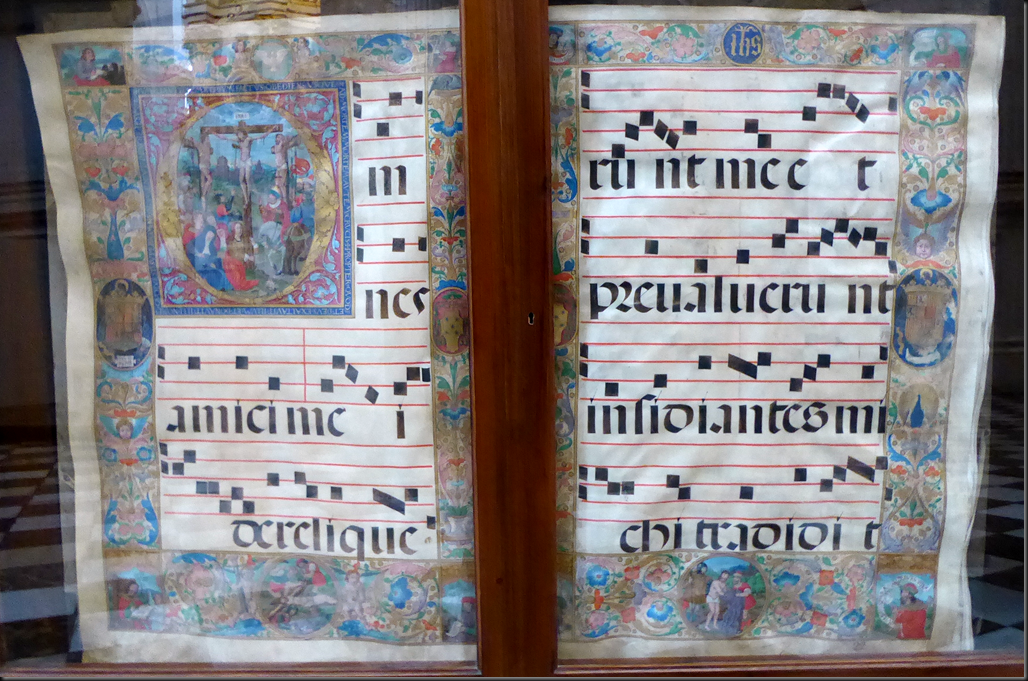 Om
nes
amici me i
derelique
ihs
ru nt me e t
preualueru nt
insidiantes mi
chi tradidi t